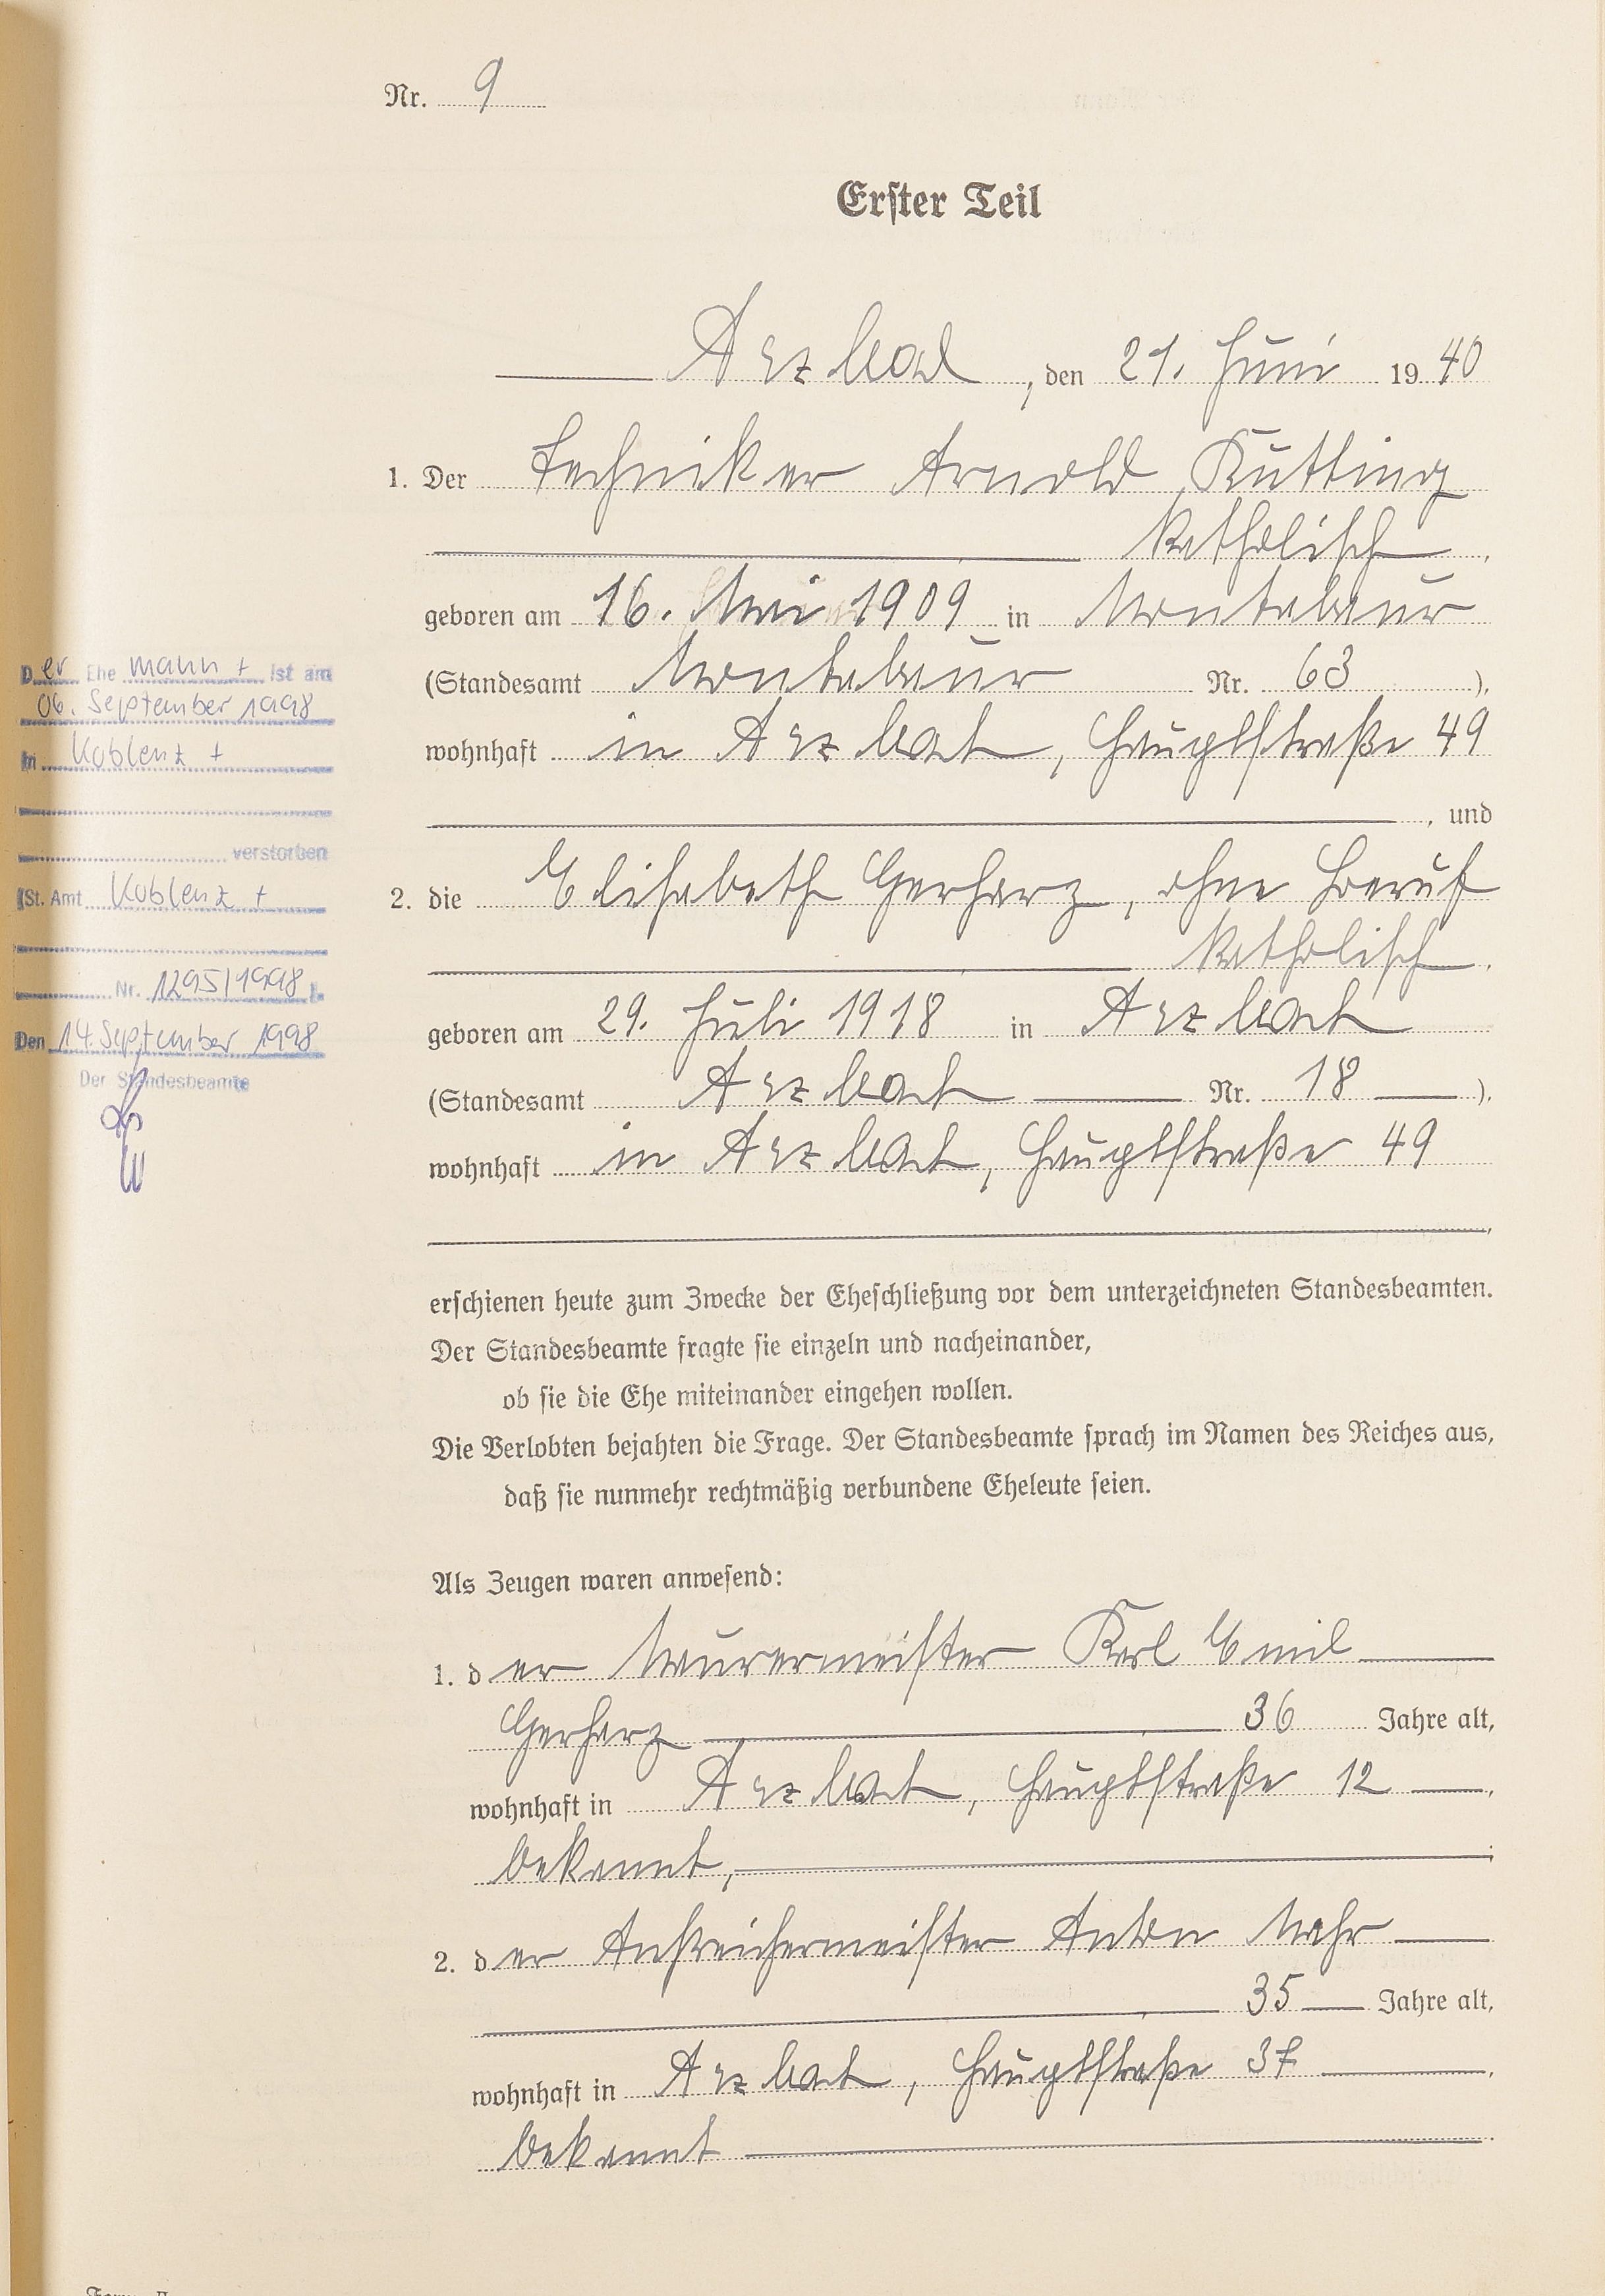 Nr. 9
Erster Teil
Arzbach, den 21. Juni 1940
1. Der Techniker Arnold Kutting
katholisch,
geboren am 16. Mai 1909 in Montabaur
(Standesamt Montabaur Nr. 63),
wohnhaft in Arzbach, Hauptstraße 49
, und
2. die Elisabeth Gerharz, ohne Beruf
katholisch,
geboren am 29. Juli 1918 in Arzbach
(Standesamt Arzbach Nr. 18),
wohnhaft in Arzbach, Hauptstraße 49
,
erschienen heute zum Zwecke der Eheschließung vor dem unterzeichneten Standesbeamten.
Der Standesbeamte fragte sie einzeln und nacheinander,
ob sie die Ehe miteinander eingehen wollen.
Die Verlobten bejahten die Frage. Der Standesbeamte sprach im Namen des Reiches aus,
daß sie nunmehr rechtmäßig verbundene Eheleute seien.
Als Zeugen waren anwesend:
1. der Maurermeister Karl Emil
Gerharz 36 Jahre alt,
wohnhaft in Arzbach, Hauptstraße 12,
bekannt,;
2. der Anstreichermeister Anton Mohr
35 Jahre alt,
wohnhaft in Arzbach, Hauptstraße 37,
bekannt.
Der Ehemann + ist am
06. September 1998
in Koblenz +
verstorben
(St. Amt Koblenz +
Nr. 1295/1998).
Den 14. September 1998
Der Standesbeamte